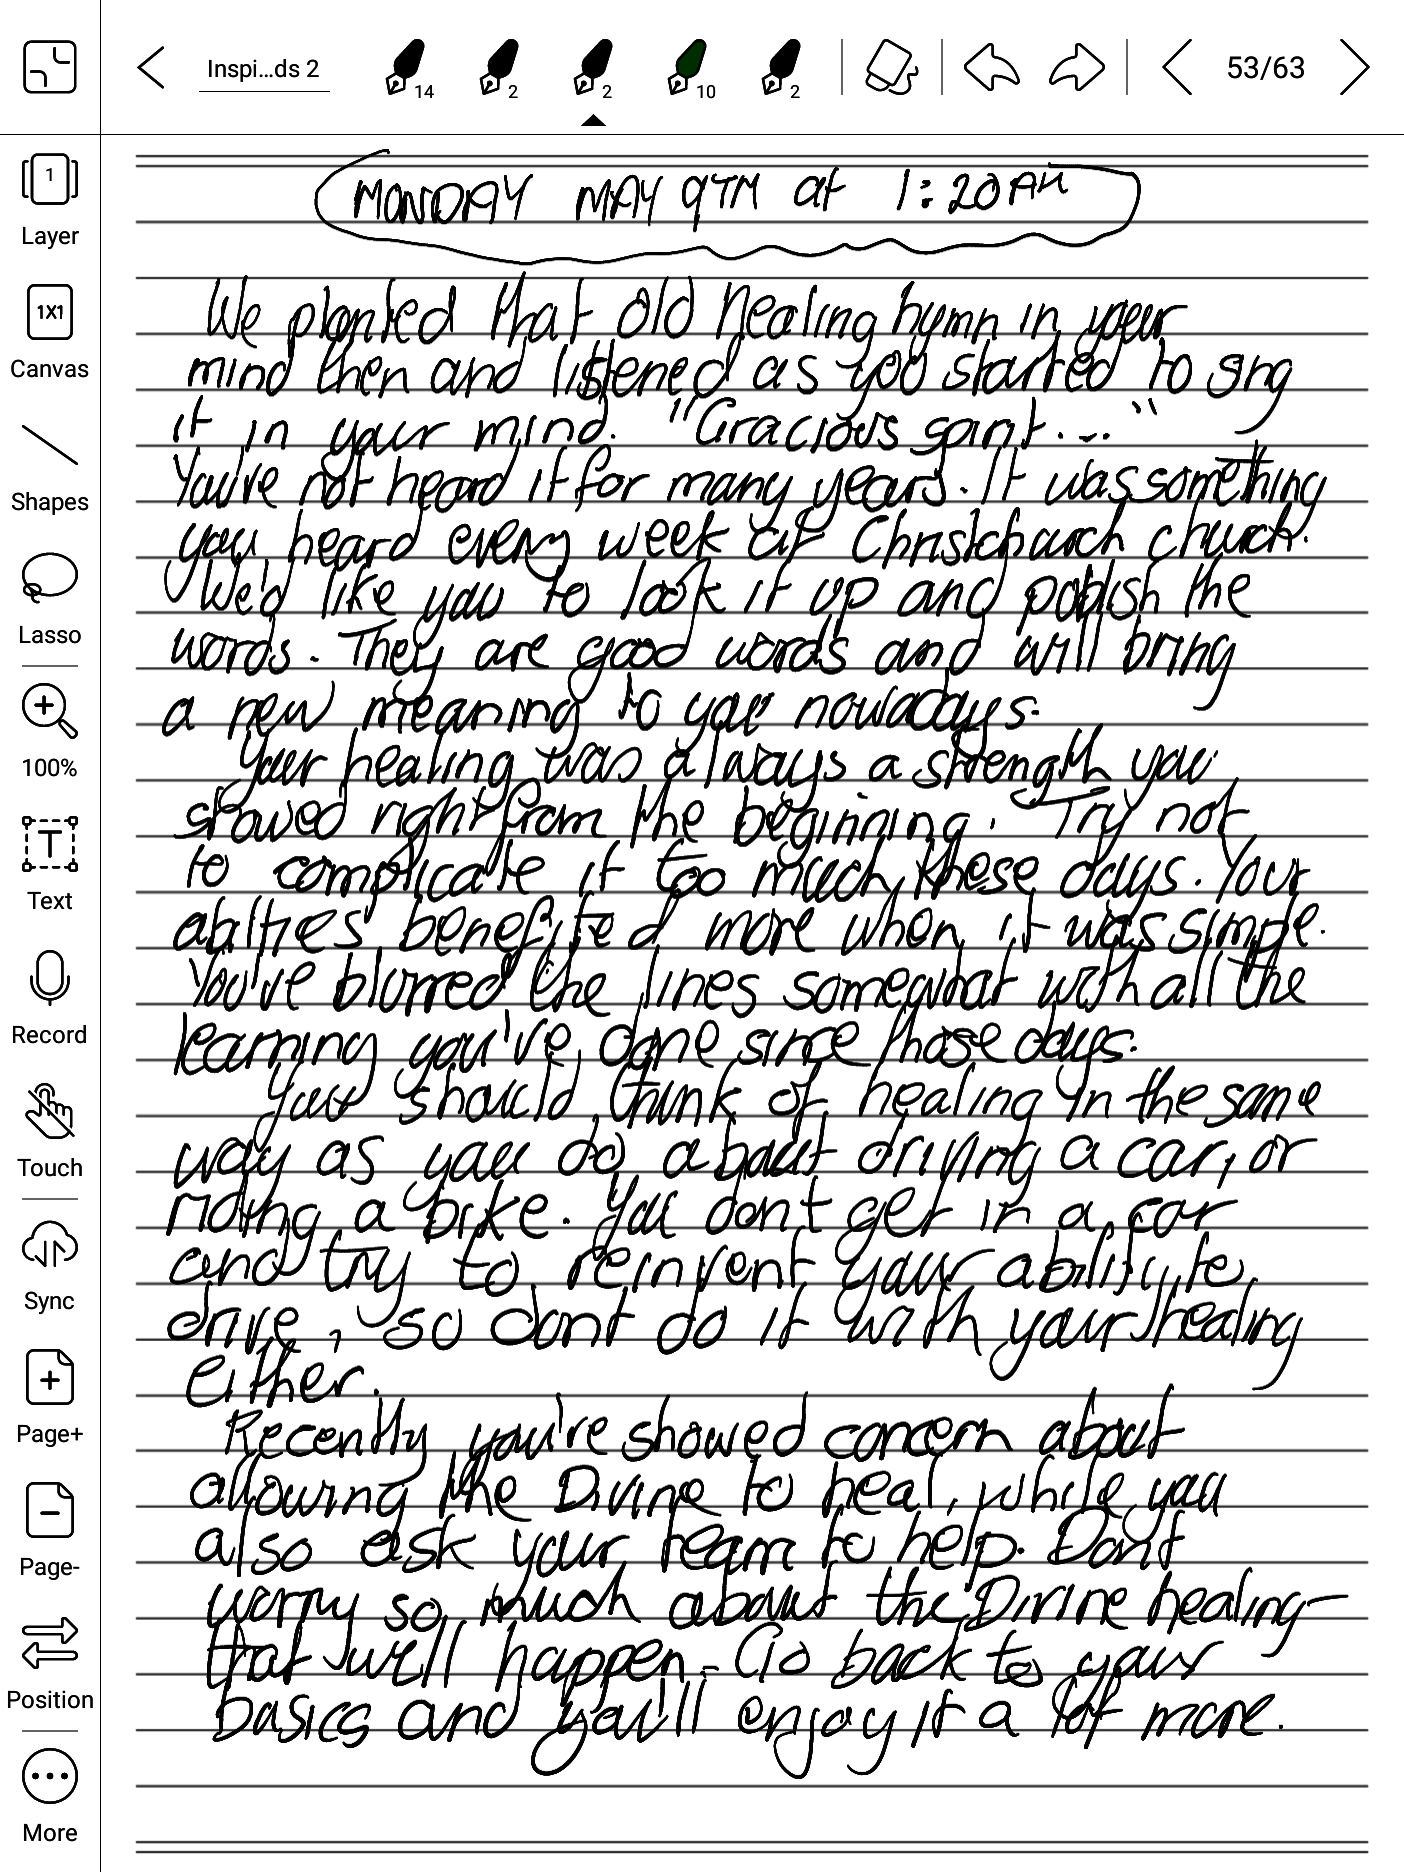 Inspi...ds 2
14
2
2
10
2
53/63
1
Layer
1X1
Canvas
Shapes
Lasso
100%
T
Text
Record
Touch
Sync
Page+
Page-
Position
More
MONDAY MAY 9TH at 1:20AM
We planted that old healing hymn in your
mind then and listened as you started to sing
it in your mind. "Gracious spirit..."
You've not heard it for many years. It was something
you heard every week at Christchurch church.
We'd like you to look it up and publish the
words. They are good words and will bring
a new meaning to you nowadays.
Your healing was always a strength you
showed right from the beginning. Try not
to complicate it too much these days. Your
abilties benefited more when it was simple.
You've blurred the lines somewhat with all the
learning you've done since those days.
You should think of healing in the same
way as you do about driving a car, or
riding a bike. You dont get in a car
and try to reinvent your ability to
drive, so dont do it with your healing
either.
Recently you've showed concern about
allowing the Divine to heal, while you
also ask your team to help. Dont
worry so much about the Divine healing-
that will happen. Go back to your
basics and you'll enjoy it a lot more.